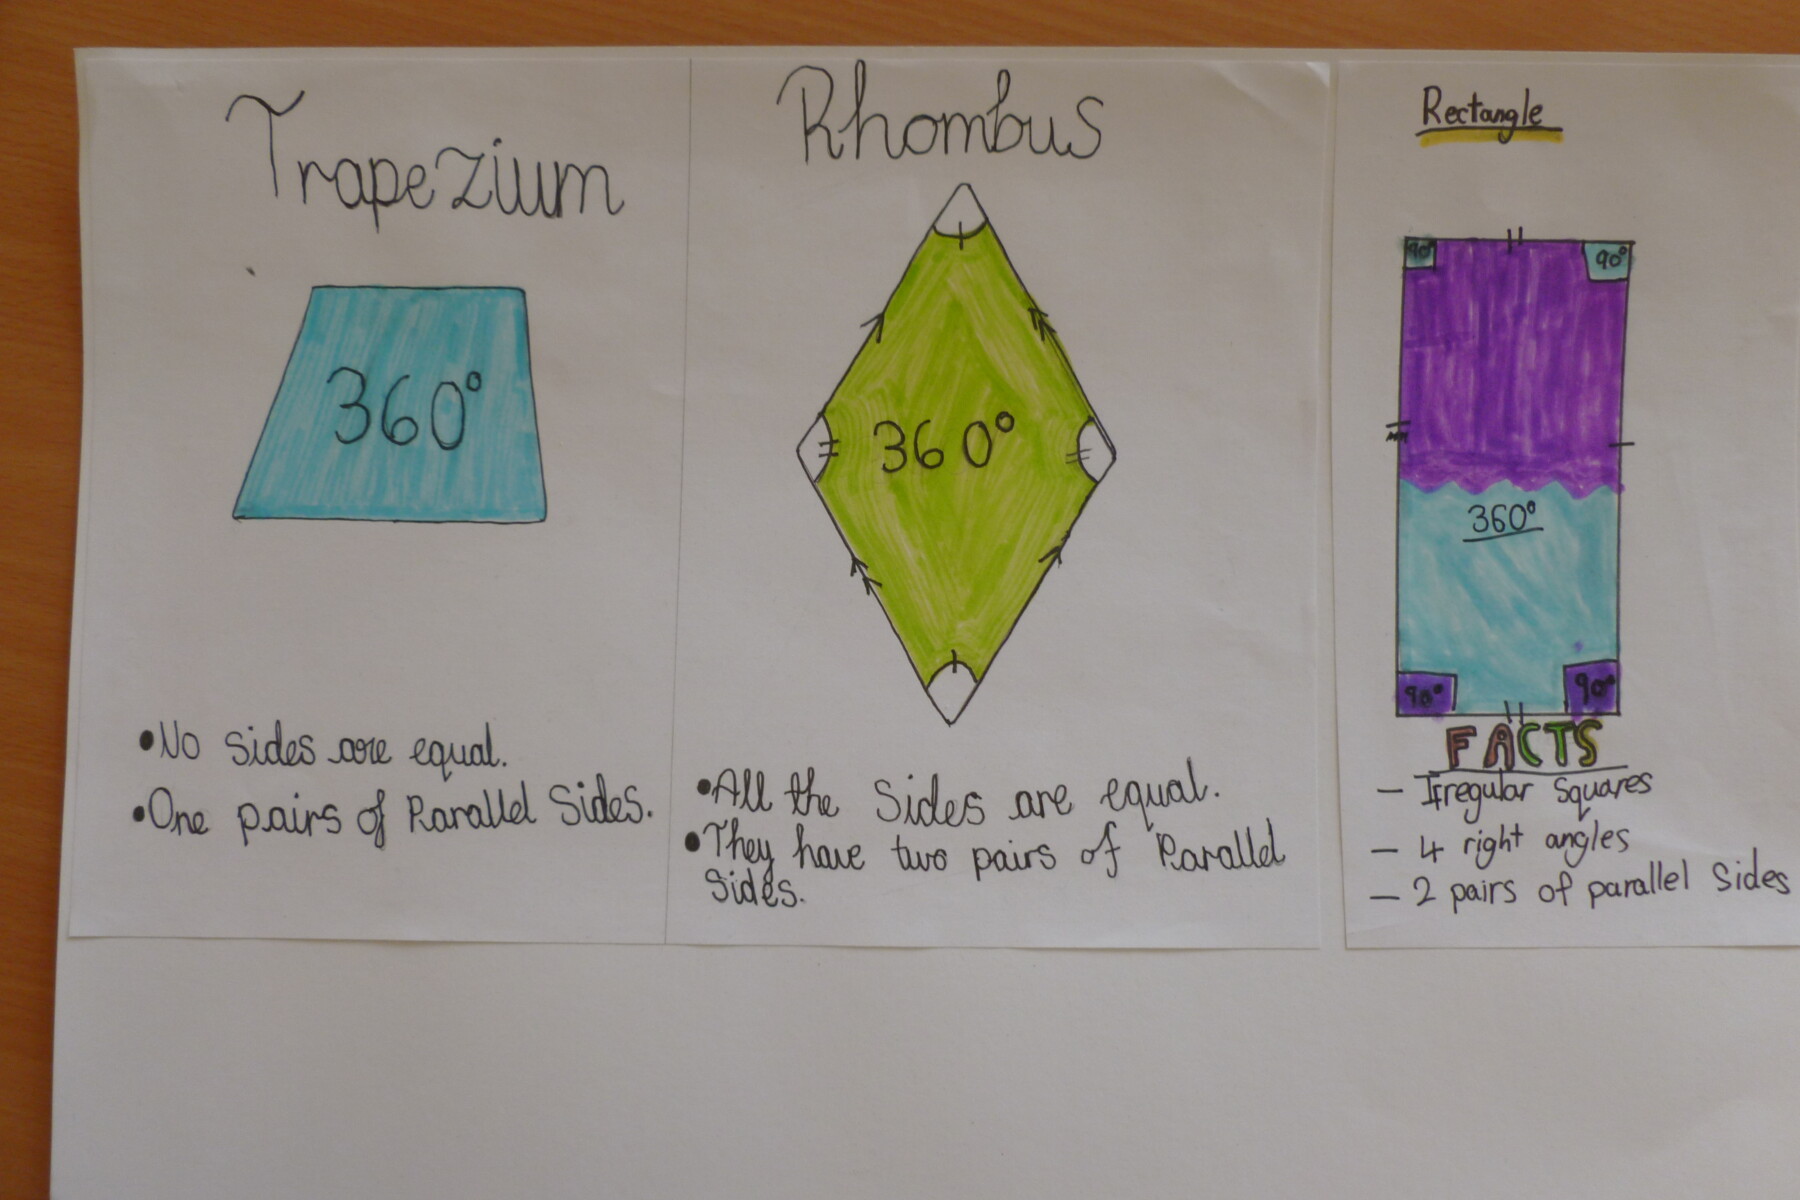 Trapezium
360°
•No sides are equal.
•One pairs of Parallel Sides.
Rhombus
360°
•All the Sides are equal.
•They have two pairs of Parallel
Sides.
Rectangle
90° 90°
360°
90° 90°
FACTS
– Irregular Squares
– 4 right angles
– 2 pairs of parallel Sides